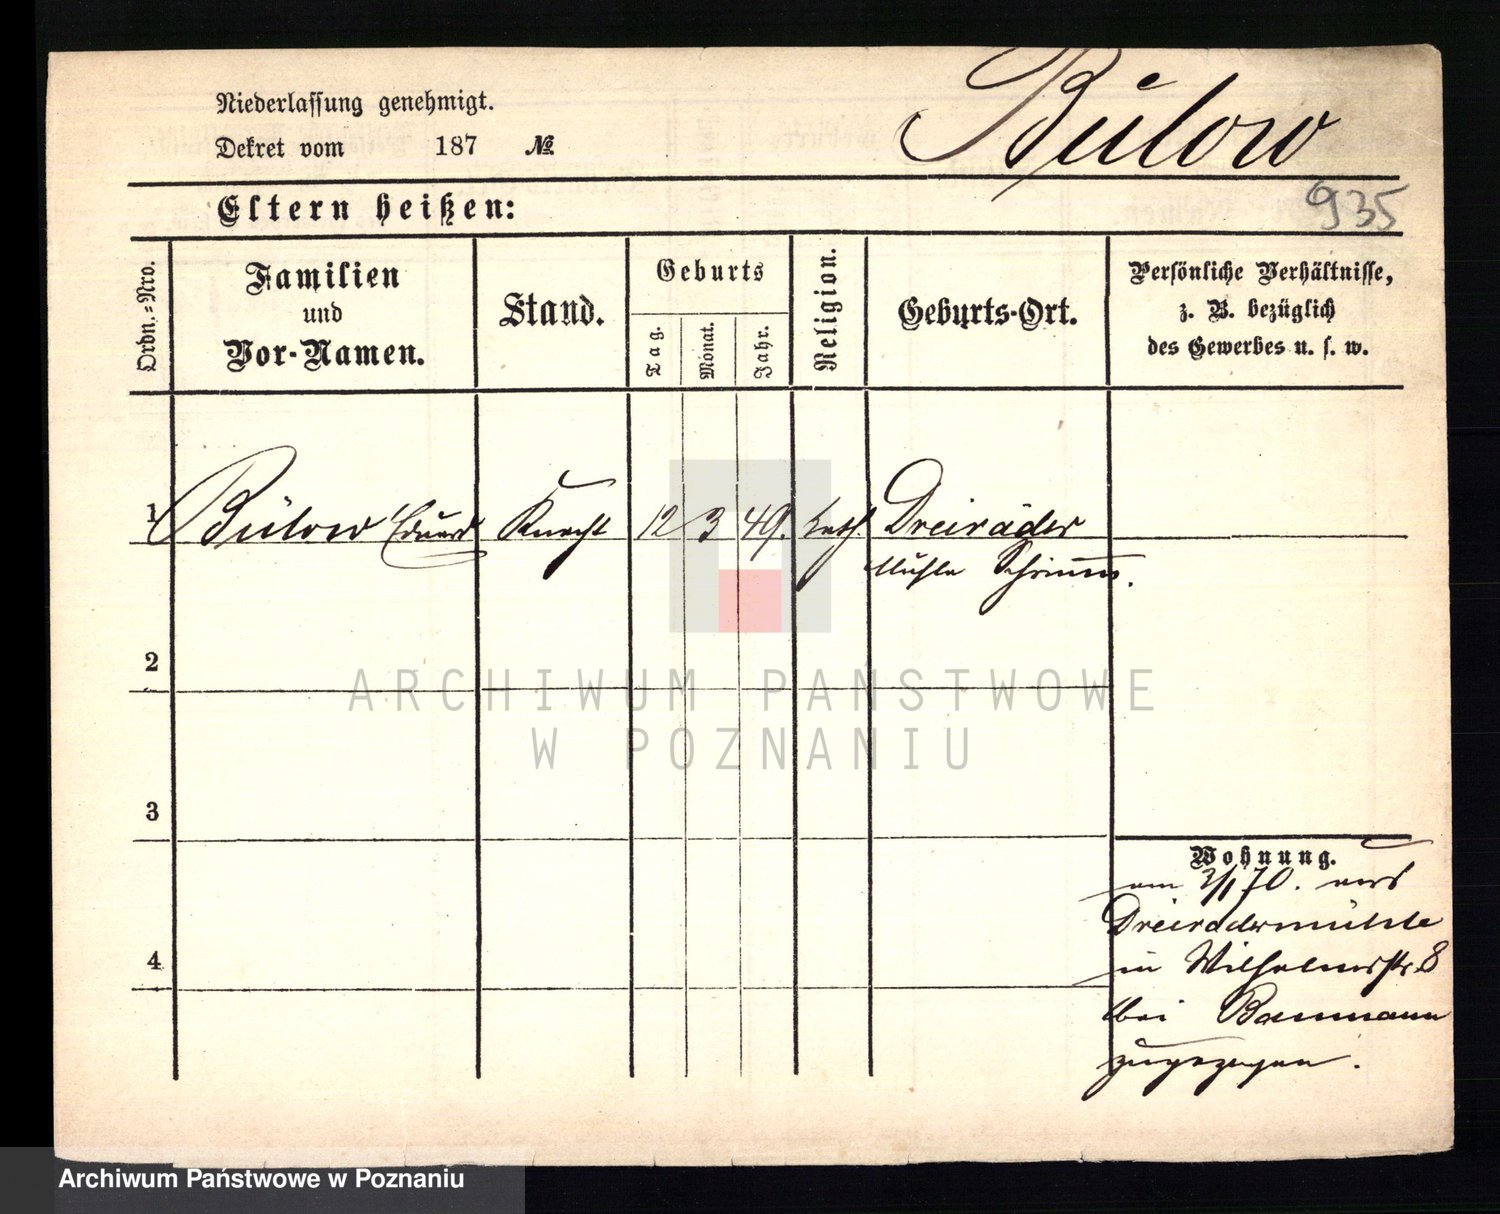 Bülow
Niederlassung genehmigt.
Dekret vom 187 №
935
Eltern heißen:
Ordn.=Nro.
Familien
und
Vor-Namen.
Stand.
Geburts
Tag.
Monat.
Jahr.
Religion.
Geburts-Ort.
Persönliche Verhältnisse,
z. B. bezüglich
des Gewerbes u. s. w.
1 Bülow Eduard Knecht 12 3 49. kath. Dreiräder
Mühle Schrimm.
2
ARCHIWUM PAŃSTWOWE
W POZNANIU
3
Wohnung.
am 2/1 70. aus
Dreiradermühle
in Wilhelmsstr. 8
4
bei Baumann
zugezogen.
Archiwum Państwowe w Poznaniu